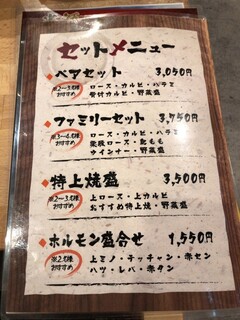 セットメニュー
ペアセット 3,050円
※2〜3名様
おすすめ
ロース・カルビ・ハラミ
骨付カルビ・野菜盛
ファミリーセット 3,750円
※3〜4名様
おすすめ
ロース・カルビ・ハラミ
ウインナー・野菜盛
特上焼盛 3,500円
※2〜3名様
おすすめ
上ロース・上カルビ
おすすめ特上焼・野菜盛
ホルモン盛合せ 1,550円
※2名様
おすすめ
上ミノ・テッチャン・赤セン
ハツ・レバ・赤タン